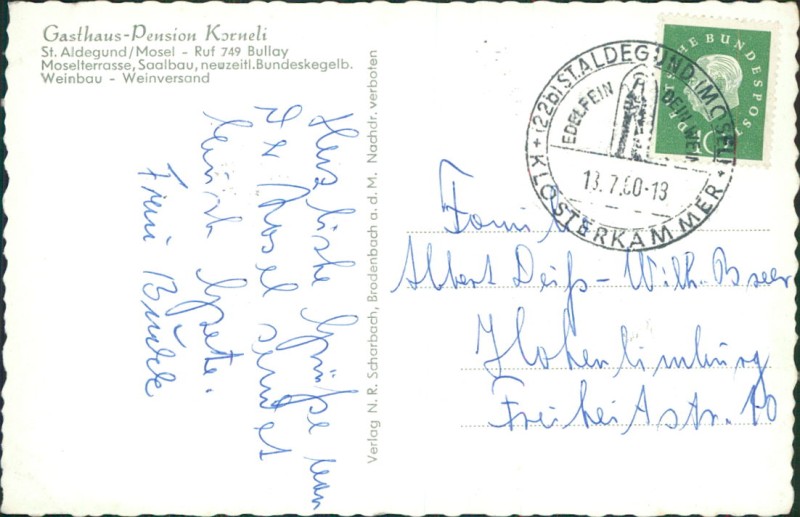 Gasthaus-Pension Korneli
St. Aldegund/Mosel - Ruf 749 Bullay
Moselterrasse, Saalbau, neuzeitl. Bundeskegelb.
Weinbau - Weinversand
Herzliche Grüße von
der Mosel sendet
Grete.
Frau
Verlag N. R. Scharbach, Brodenbach a. d. M. Nachdr. verboten
DEUTSCHE BUNDESPOST
10
(22b) ST. ALDEGUND (MOSEL)
EDELFEIN
DEIN WEIN
13.7.60-13
KLOSTERKAMMER
Familie
Albert Deiß - Wilh. Bseer
Hohenlimburg
Freiheitstr. 10